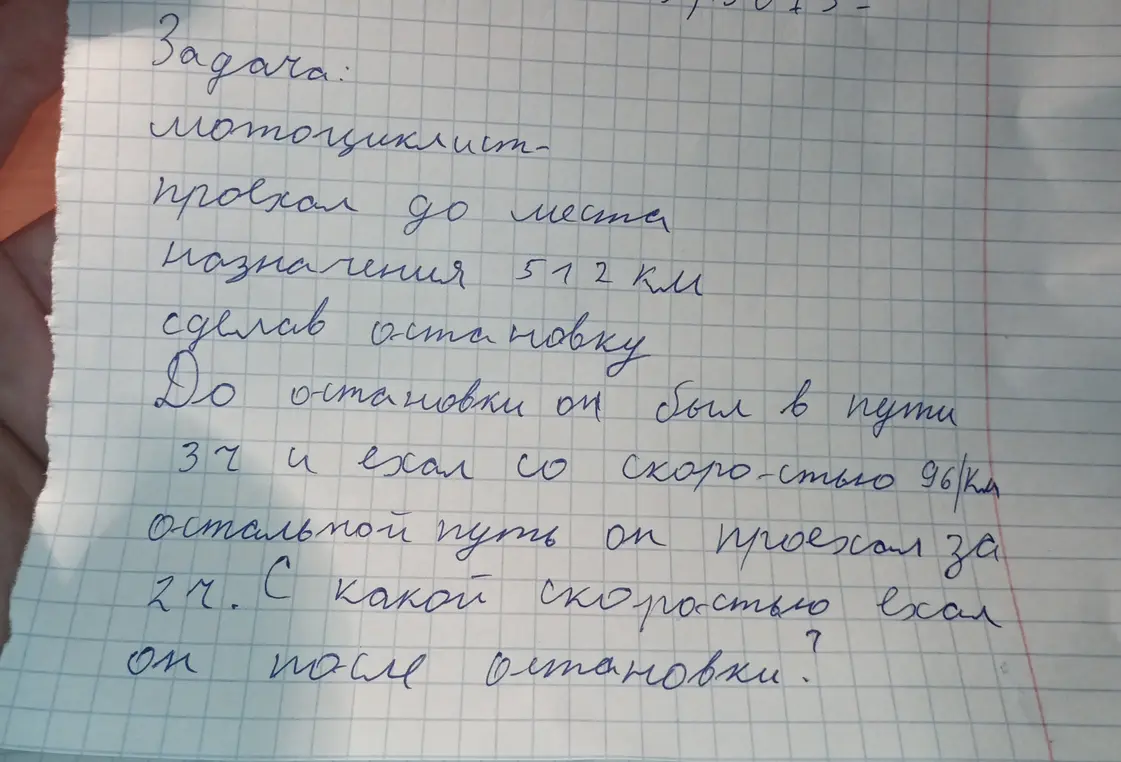 Задача:
мотоциклист-
проехал до места
назначения 512 км
сделав остановку
До остановки он был в пути
3 ч и ехал со скоростью 96/км
остальной путь он проехал за
2 ч. С какой скоростью ехал
он после остановки?